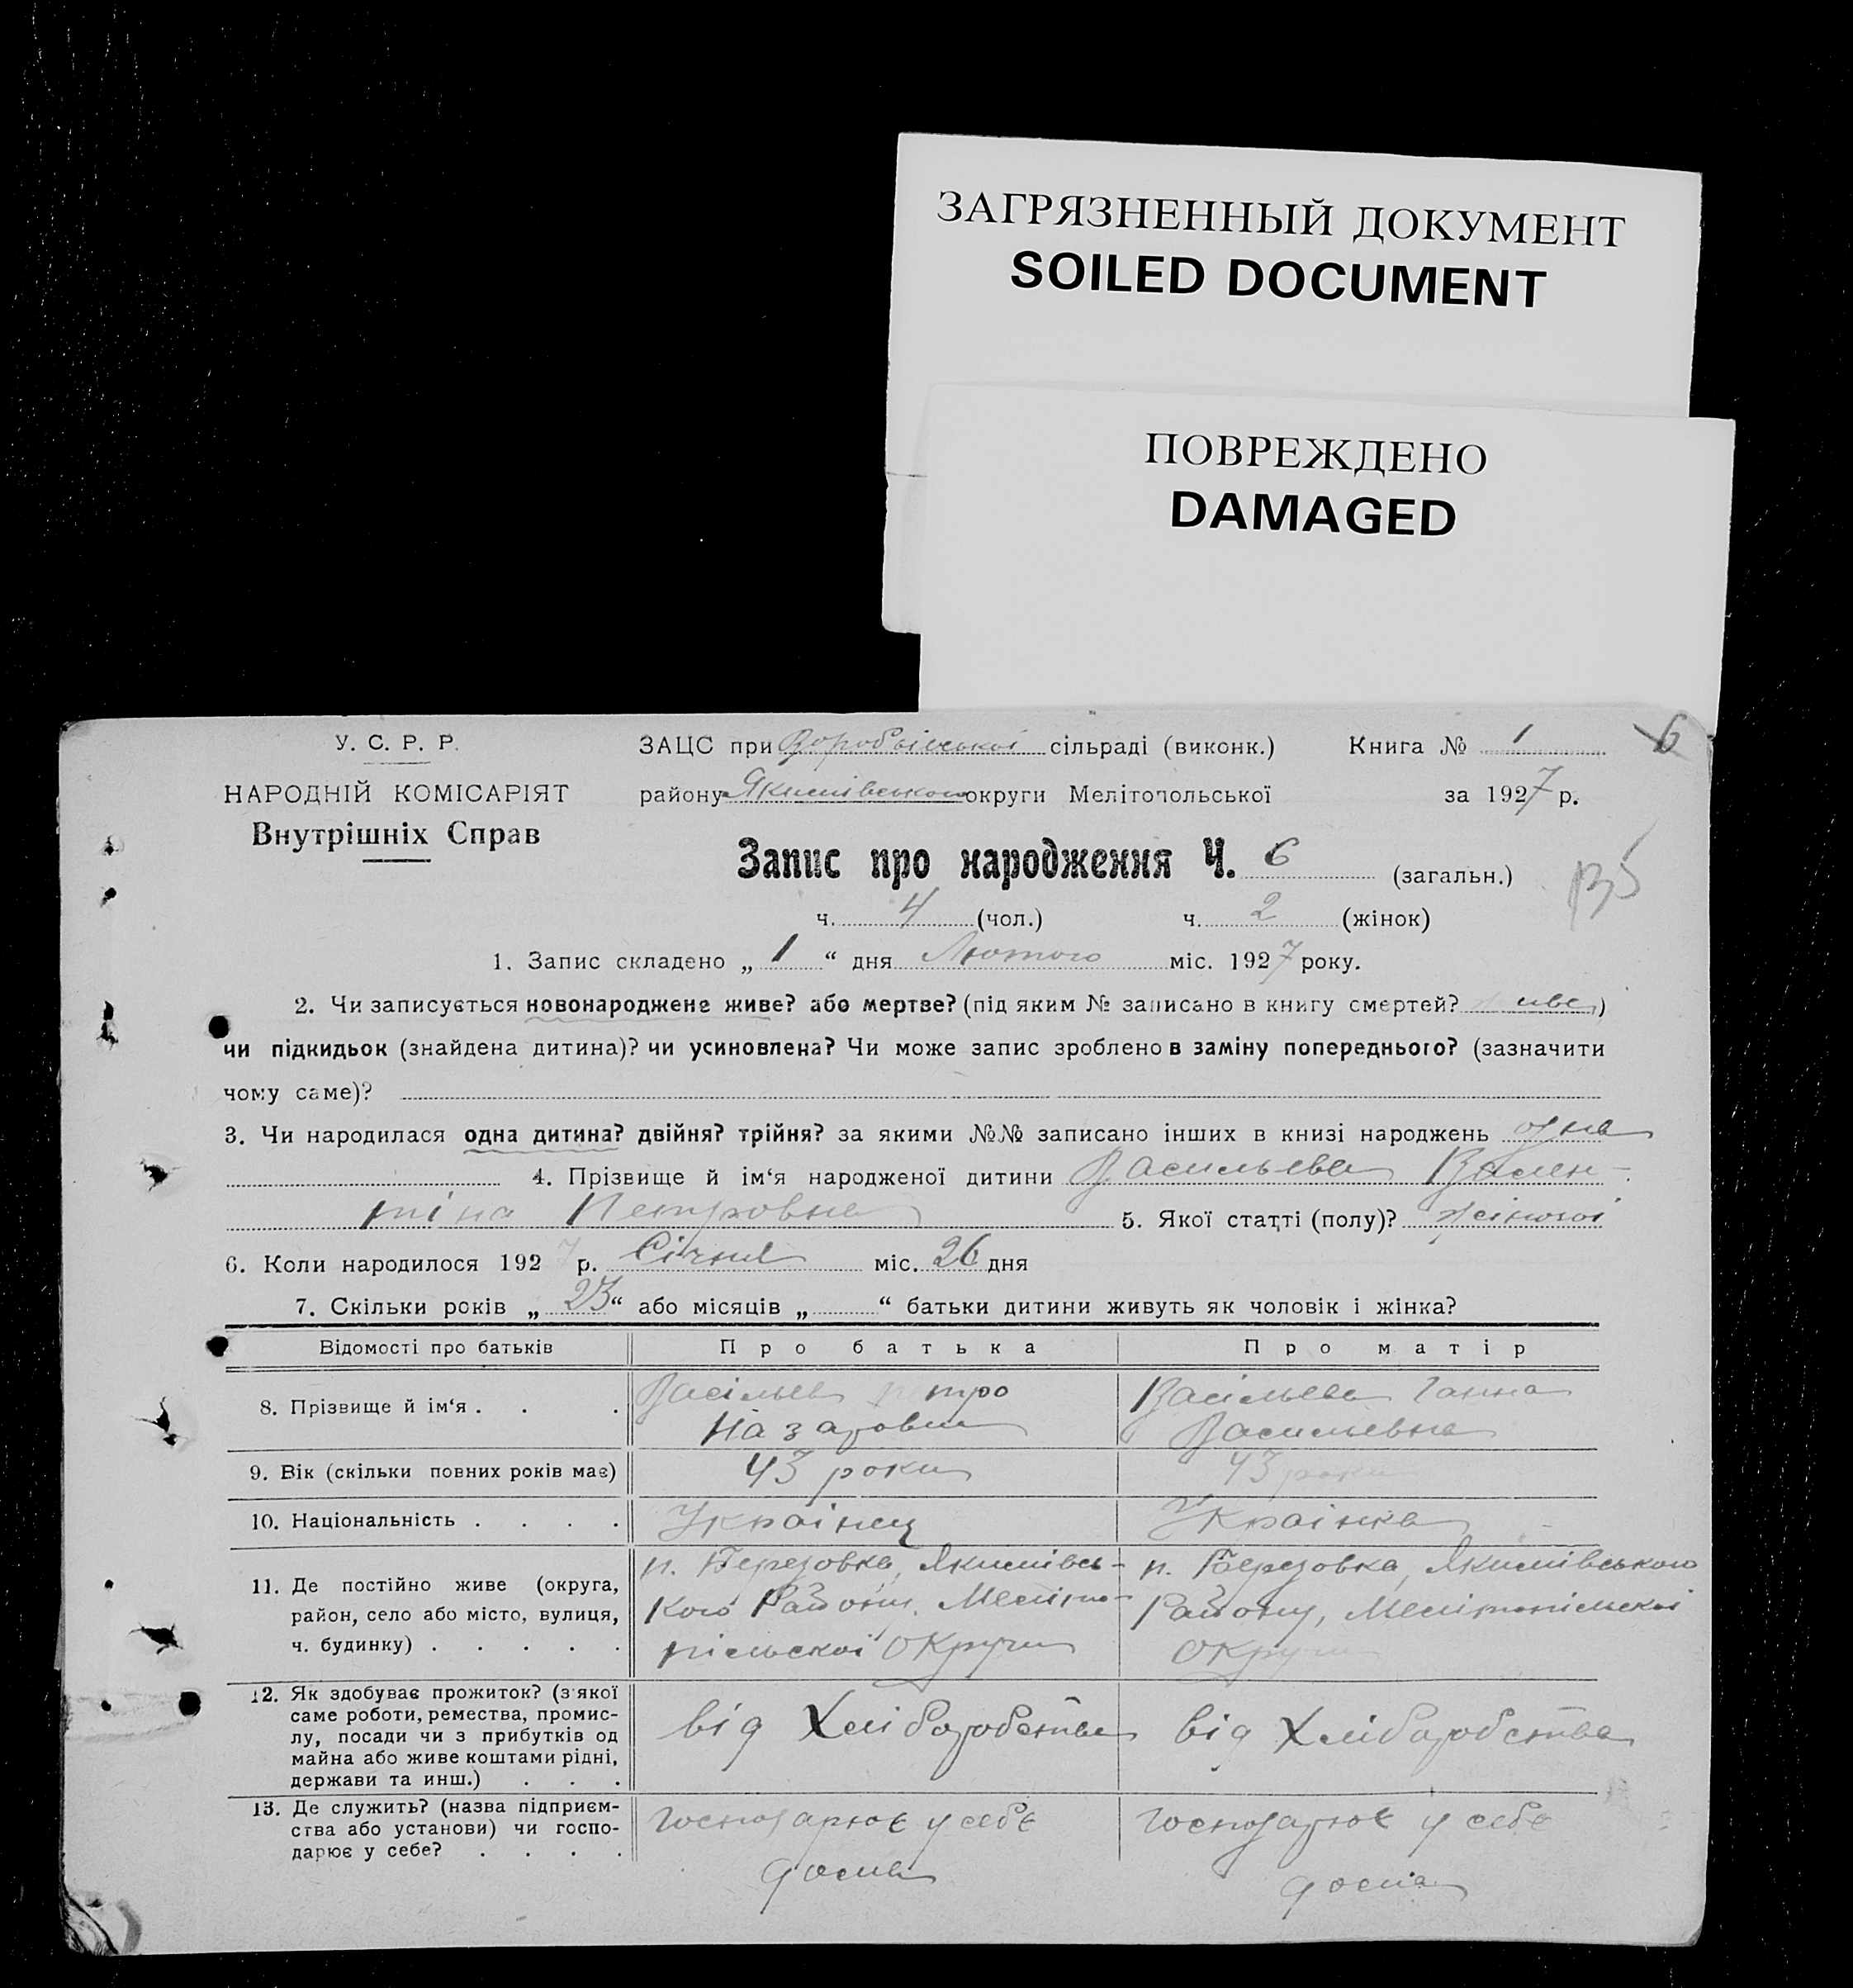 ЗАГРЯЗНЕННЫЙ ДОКУМЕНТ
SOILED DOCUMENT
ПОВРЕЖДЕНО
DAMAGED
У. С. Р. Р.
НАРОДНІЙ КОМІСАРІЯТ
Внутрішніх Справ
ЗАЦС при Воробьівської сільраді (виконк.) Книга № 1 6
району Якимівського округи Мелітопольської за 1927 р.
Запис про народження Ч. 6 (загальн.)
ч. 4 (чол.) ч. 2 (жінок)
1. Запис складено „ 1 “ дня Лютого міс. 1927 року.
2. Чи записується новонароджене живе? або мертве? (під яким № записано в книгу смертей? живе)
чи підкидьок (знайдена дитина)? чи усиновлена? Чи може запис зроблено в заміну попереднього? (зазначити
чому саме)?
3. Чи народилася одна дитина? двійня? трійня? за якими №№ записано інших в книзі народжень одна
4. Прізвище й ім‘я народженої дитини Васильева Вален-
тіна Петровна 5. Якої статті (полу)? жіночої
6. Коли народилося 1927 р. Січня міс. 26 дня
7. Скільки років „ 23 “ або місяців „ “ батьки дитини живуть як чоловік і жінка?
Відомості про батьків Про батька Про матір
8. Прізвище й ім‘я . . . Васільев Петро Васільева Ганна
Назарович Васильевна
9. Вік (скільки повних років має) 43 роки 43 роки
10. Національність . . . . Украінец Украінка
11. Де постійно живе (округа, район, село або місто, вулиця, ч. будинку) . . . . .
п. Березовка, Якимівсь-
кого Району, Меліто-
пільскоі Округи
п. Березовка, Якимівського
Району, Мелітопільскоі
Округи
12. Як здобуває прожиток? (з якої
саме роботи, ремества, промис-
лу, посади чи з прибутків од
майна або живе коштами рідні,
держави та инш.) . . .
від Хліборобства від Хліборобства
13. Де служить? (назва підприєм-
ства або установи) чи госпо-
дарює у себе? . . . .
господарює у себе
дома
господарює у себе
дома